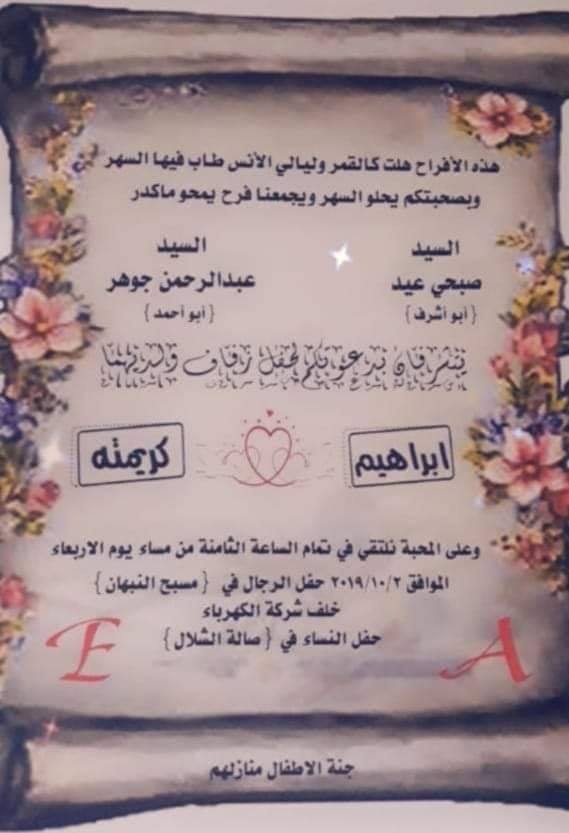 هذه الأفراح هلت كالقمر وليالي الأنس طاب فيها السهر
وبصحبتكم يحلو السهر ويجمعنا فرح يمحو ماكدر
السيد
صبحي عيد
{أبو أشرف}
السيد
عبدالرحمن جوهر
{أبو أحمد}
يتشرفان بدعوتكم لحفل زفاف ولديهما
ابراهيم
كريمته
وعلى المحبة نلتقي في تمام الساعة الثامنة من مساء يوم الاربعاء
الموافق ٢٠١٩/١٠/٢ حفل الرجال في {مسبح النبهان}
خلف شركة الكهرباء
حفل النساء في {صالة الشلال}
E
A
جنة الاطفال منازلهم